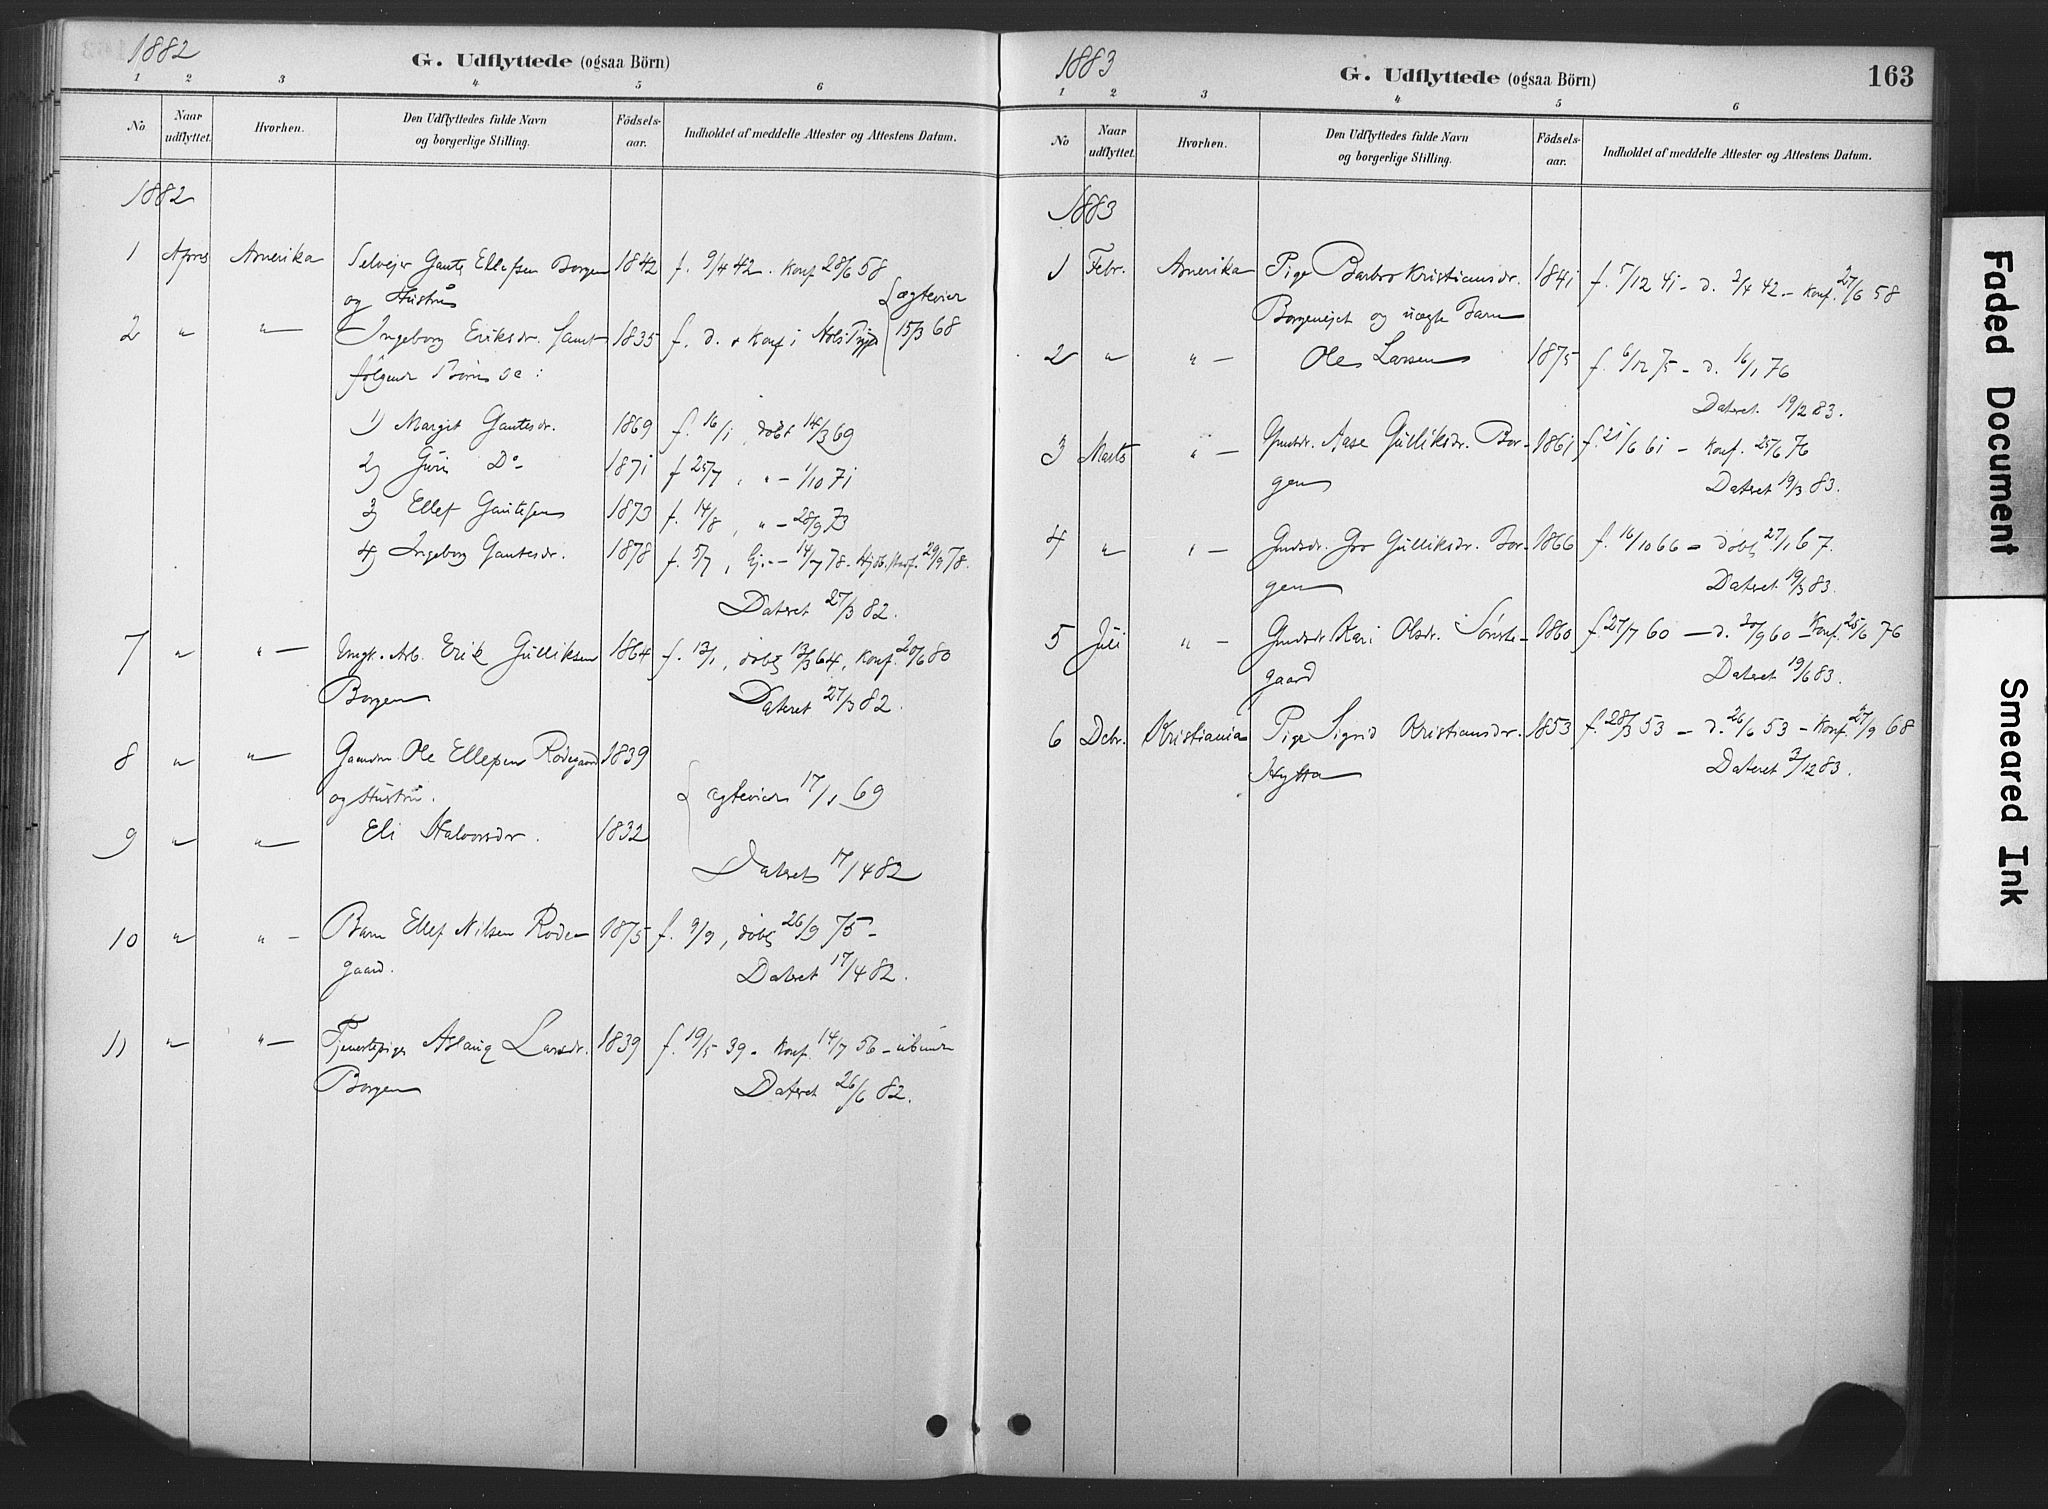 1882
G. Udflyttede (ogsaa Börn)
1 2 3 4 5 6
No
Naar udflyttet.
Hvorhen.
Den Udflyttedes fulde Navn og borgerlige Stilling.
Födsels-aar.
Indholdet af meddelte Attester og Attestens Datum.
1882
1 Amerika Selvejer Ellefsen Borgen 1842 f. 9/4 42. Konf 28/6 58
og Hustru ægtevier 15/3 68
2 " " Ingeborg Eriksdr. samt 1835 f. d. + Konf i
følgende Börn
1) Margit Gautesdr. 1869 f. 16/1, döbt 14/3 69
2) Guri Do 1871 f 25/7, " - 1/10 71
3) Ellef Gautesen 1873 f. 14/8, " - 28/9 73
4) Ingeborg Gautesdr. 1878 f. 5/7, Hj. - 14/7 78. 29/9 78.
Dateret 27/3 82.
7 " " - Ungk. Arb. Erik Gulliksen 1864 f. 13/1, döbt 13/3 64, Konf. 20/6 80
Borgen Dateret 27/3 82.
8 " " Ole Ellefsen Rodegaard 1839
og Hustru. ægteviet 17/1 69
9 " " Eli Halvorsdr. 1832
Dateret 17/4 82
10 " " - Barn Ellef Nilsen Rode- 1875 f. 9/9, döbt 26/9 75 -
gaard. Dateret 17/4 82.
11 " " - Tjenestepige Aslaug Larsdr. 1839 f. 19/5 39 - Konf. 14/7 56 -
Borgen Dateret 26/6 82.
1883
G. Udflyttede (ogsaa Börn)
163
1 2 3 4 5 6
No
Naar udflyttet.
Hvorhen.
Den Udflyttedes fulde Navn og borgerlige Stilling.
Födsels-aar.
Indholdet af meddelte Attester og Attestens Datum.
1883
1 Febr. Amerika Pige Barbro Kristiansdr. 1841 f. 5/12 41 - d. 2/4 42 - Konf. 27/6 58
Borgenejet og uægte Barn
2 " " - Ole Larsen 1875 f. 6/12 75 - d. 16/1 76
Dateret 19/2 83.
3 Marts " - Aase Gulliksdr. Bor- 1861 f. 21/6 61 - Konf. 25/6 76
gen Dateret 19/3 83.
4 " " - Gmdsdr. Gro Gulliksdr. Bor- 1866 f. 16/10 66 - döbt 27/1 67.
gen Dateret 19/3 83.
5 Juli " - Gmdsdr. Kari Olsdr. Sörste- 1860 f. 27/7 60 - d. 20/9 60 - Konf. 25/6 76
gaard Dateret 19/6 83.
6 Dcbr. Kristiania Pige Sigrid Kristiansdr. 1853 f. 28/3 53 - d. 26/6 53 - Konf. 27/9 68
Hytta Dateret 3/12 83.
Faded Document
Smeared Ink